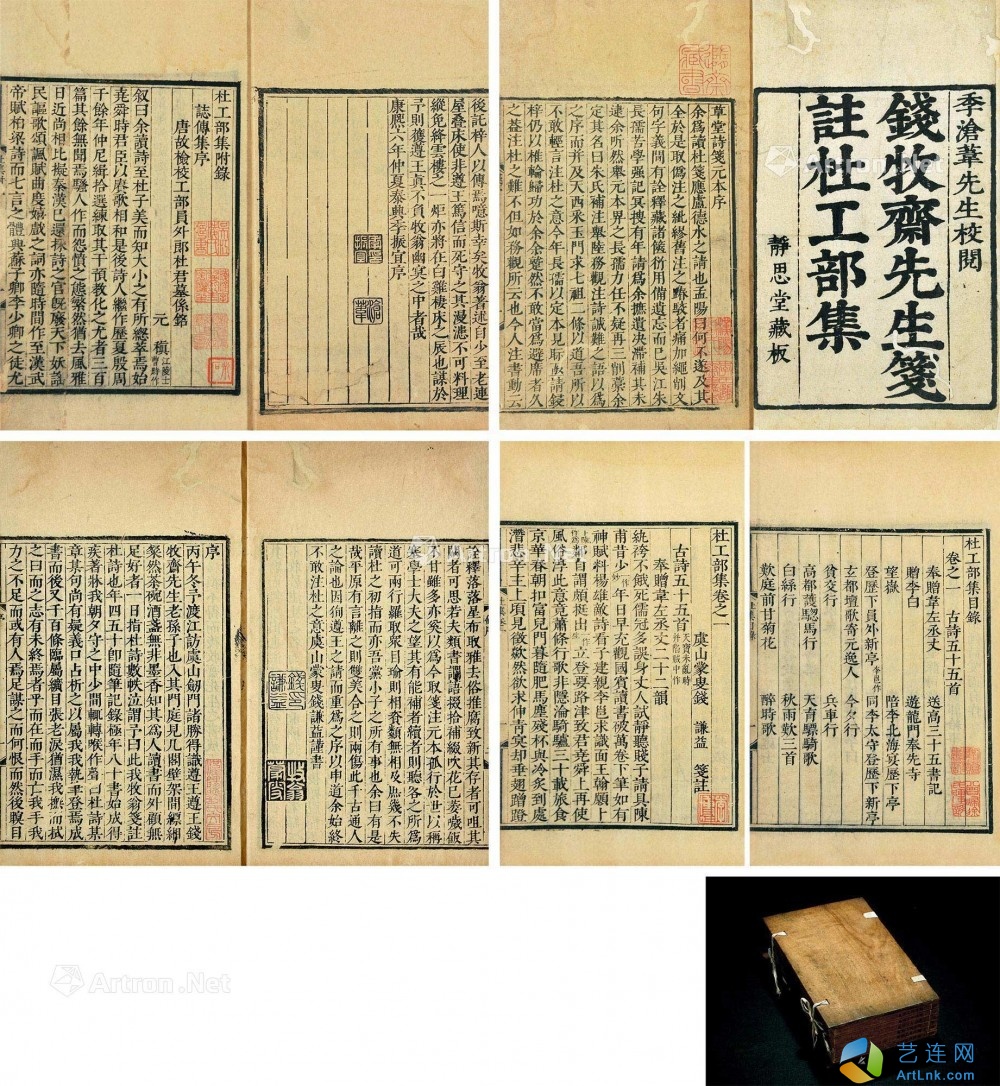 季滄葦先生校閱
錢牧齋先生箋
註杜工部集
靜思堂藏板
草堂詩箋元本序
余爲讀杜箋應盧德水之請也孟陽曰何不遂及其
全於是取僞注之紕繆舊注之踳駁者痛加繩削文
何字義間有詮釋藏諸篋衍用備遺忘而已吳江朱
長孺苦學強記冥搜有年請爲余摭遺決滯補其未
逮余听然舉元本畀之長孺力任不疑再三削藁余
定其名曰朱氏補注舉陸務觀注詩誠難之語以爲
之序而并及天西采玉門求七祖二條以道吾所以
不敢輕言注杜之意今年長孺以定本見眎亟請鋟
梓仍以椎輪歸功於余余蹙然不敢當爲避席者久
之蓋注杜之難不但如務觀所云也今人注書動云
後託梓人以傳焉噫斯幸矣牧翁著述自少至老連
屋疊床使非遵王篤信而死守之其漫漶不可料理
縱免絳雲樓之一炬亦將在白雞棲床之辰也謀於
予則獲遵王真不負牧翁幽冥之中者哉
康熙六年仲夏泰興季振宜序
杜工部集附錄
誌傳集序
唐故檢校工部員外郎杜君墓係銘
元稹
叙曰余讀詩至杜子美而知大小之有所總萃焉始
堯舜時君臣以賡歌相和是後詩人繼作歷夏殷周
千餘年仲尼緝拾選練取其干預教化之尤者三百
篇其餘無聞焉騷人作而怨憤之態繁然猶去風雅
日近尚相比擬秦漢已還採詩之官旣廢天下妖謠
民謳歌頌諷賦曲度嬉戲之詞亦隨時間作至漢武
帝賦柏梁詩而七言之體興蘇子卿李少卿之徒尤
杜工部集目錄
卷之一 古詩五十五首
奉贈韋左丞丈 送高三十五書記
贈李白 遊龍門奉先寺
望嶽 陪李北海宴歷下亭
登歷下員外新亭 同李太守登歷下新亭
玄都壇歌寄元逸人 今夕行
貧交行 兵車行
高都護驄馬行 天育驃騎歌
白絲行 秋雨歎三首
歎庭前甘菊花 醉時歌
杜工部集卷之一
虞山蒙叟錢 謙益 箋註
古詩五十五首
奉贈韋左丞丈二十二韻
紈袴不餓死儒冠多誤身丈人試靜聽賤子請具陳
甫昔少年日早充觀國賓讀書破萬卷下筆如有
神賦料楊雄敵詩看子建親李邕求識面王翰願卜
鄰自謂頗挺出立登要路津致君堯舜上再使
風俗淳此意竟蕭條行歌非隱淪騎驢三十載旅食
京華春朝扣富兒門暮隨肥馬塵殘杯與冷炙到處
潛悲辛主上頃見徵歘然欲求伸青冥却垂翅蹭蹬
詮釋落落星布取雅去俗推腐致新其存者可咀其
闕者可思若夫類書讕語掇拾補綴吹花已萎噉飯
不甘雖多亦奚以爲今取箋注元本孤行於世以稱
塞學士大夫之望其有能補者續者則聽客之所爲
道可兩行羅取衆目瑜則相資纇無相及庶幾不失
讀杜之初指而亦吾黨小子之所有事也余曰有是
哉平原有言離之則雙美合之則兩傷此千古通人
之論也因徇遵王之請而重爲之序以申道余始終
不敢注杜之意虞山蒙叟錢謙益謹書
序
丙午冬予渡江訪虞山劍門諸勝得識遵王遵王錢
牧齋先生老孫子也入其門庭見几閣壁架間縹緗
粲然茶碗酒盞無非墨香知其爲人讀書而外顧無
足好者一日指杜詩數帙泣謂予曰此我牧翁箋註
杜詩也年四五十卽隨筆記錄極年八十書始成得
疾著牀我朝夕守之中少間輒轉喉作聲曰杜詩某
章某句尚有疑義口占析之以屬我我執筆登焉成
書而後又千百條臨屬纊目張老淚猶濕我撫而拭
之曰而之志有未終焉者乎而在而手而亡我手我
力之不足而或有人焉足謀之而何恨而然後瞑目
Artron.Net
艺连网
ArtLnk.com